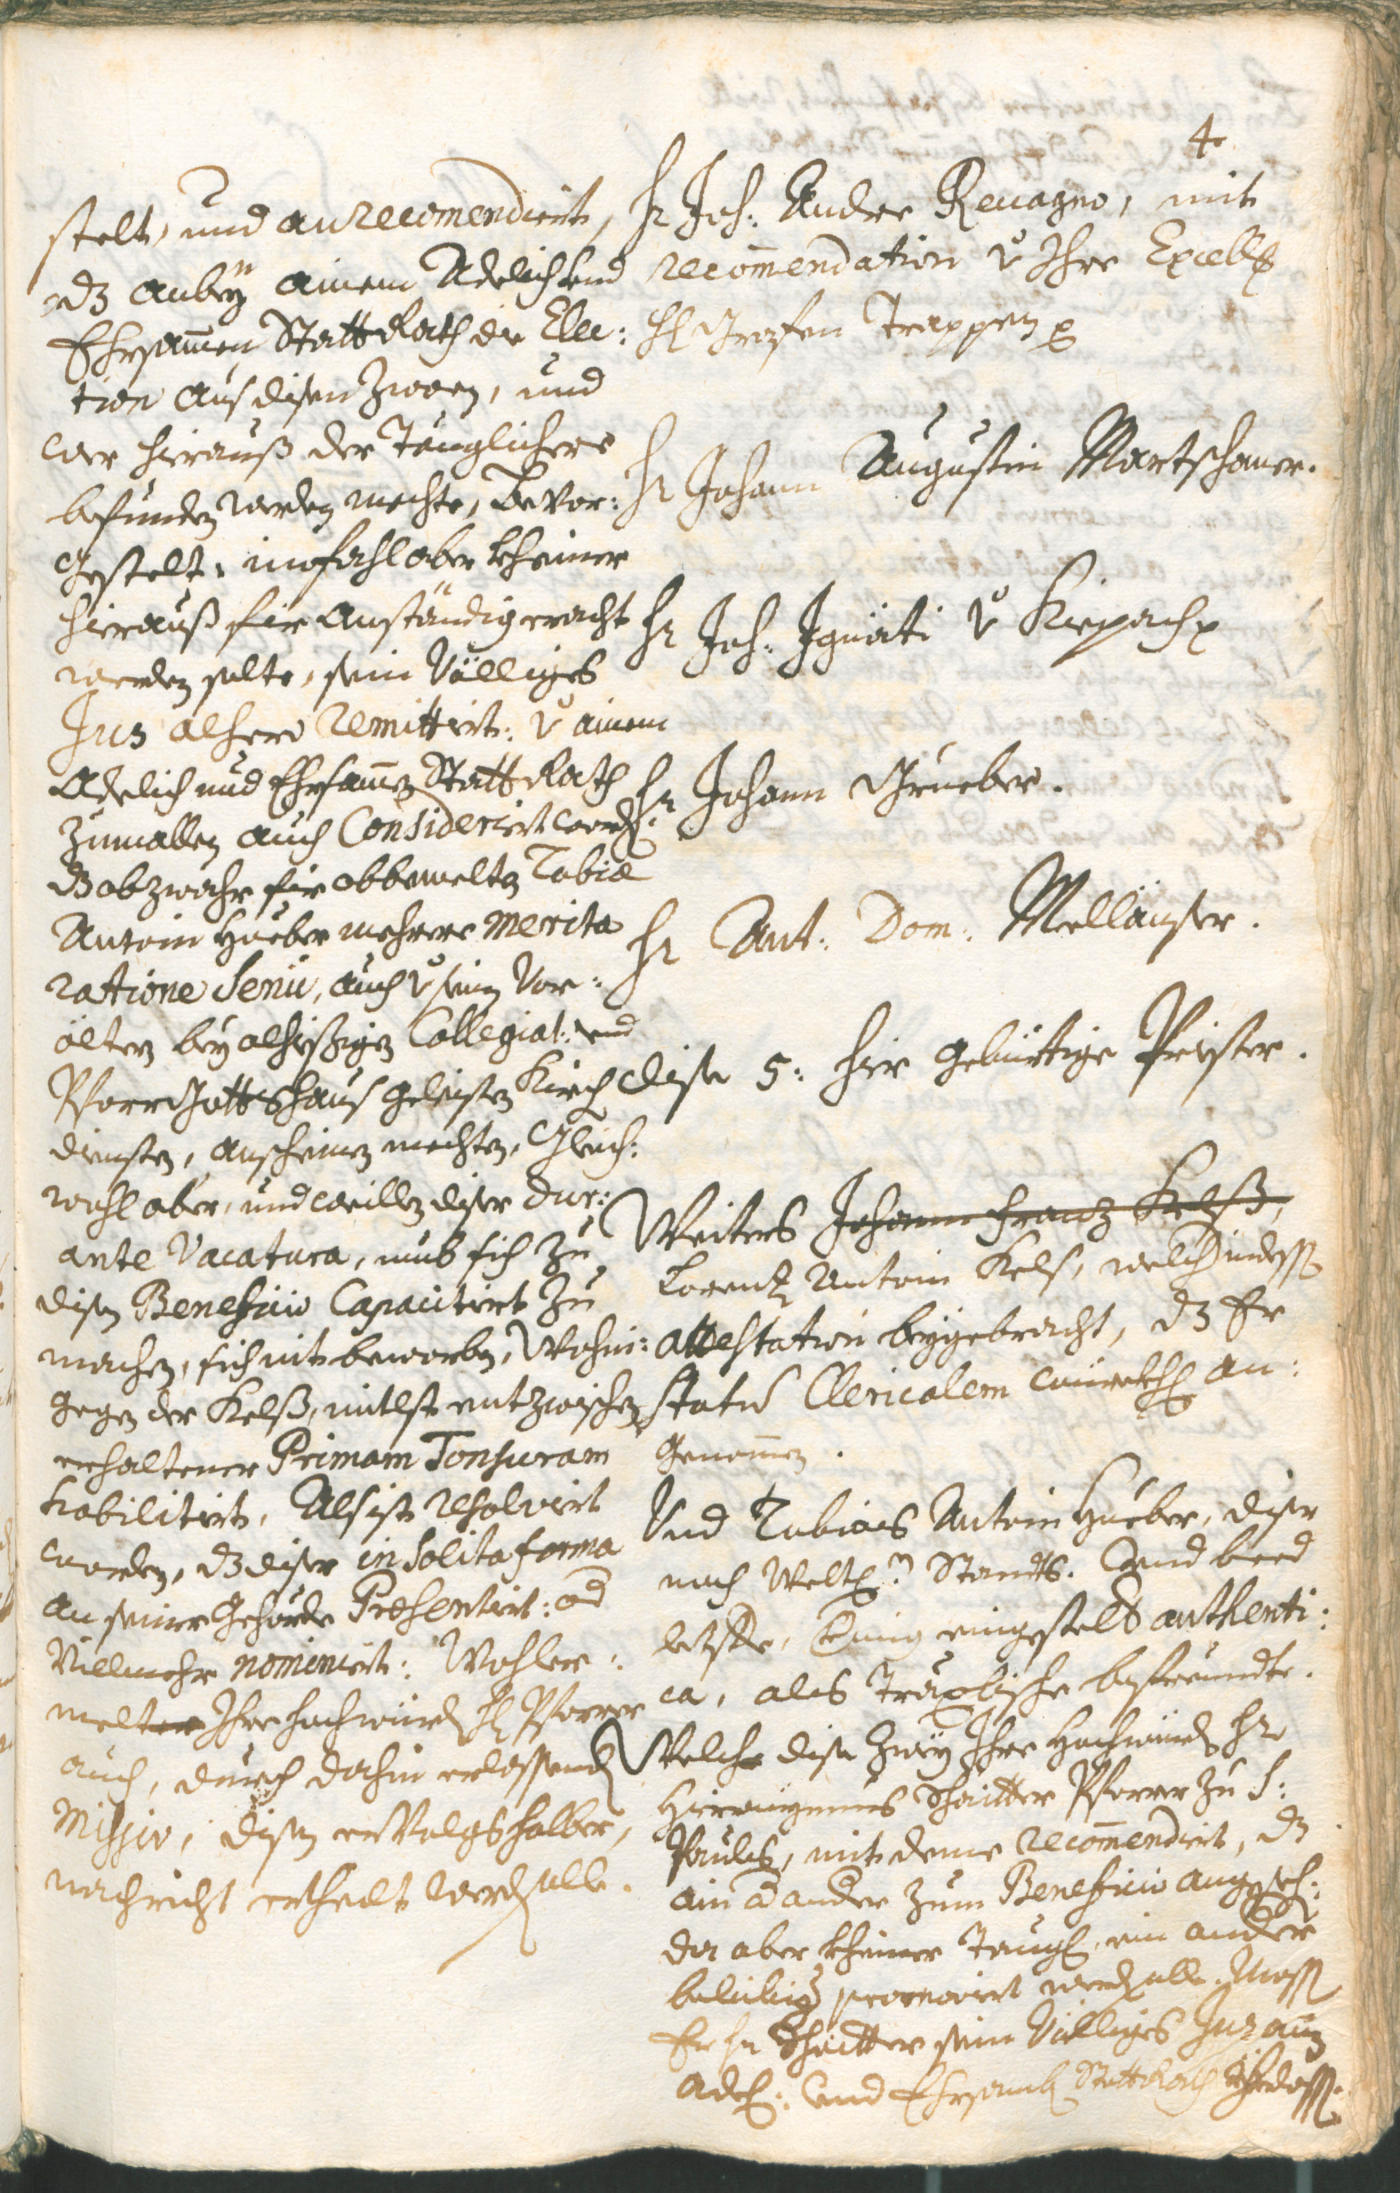 4
stelt, und anrecomendiert,
dz anbey ainem Adelich und
Ehrsamen Statt Rath die Elec:
tion aus disen zween, und
wer hierauß der Tauglichere
befunden werden mechte, bevor:
gestelt, im fahl aber kheiner
hierauß für anständig eracht
werden solte, sein völliges
Jus alhero remittiert: v ainem
Adelich und Ehrsamen Statt Rath
zumallen auch Considerirt word:
dz obzwahr für obbemelten Tobiæ
Antoni Hueber mehrere merita
ratione Senii, auch v seinen Vor:
öltern bey alhießigen Collegiat: und
Pfarr Gottshaus gelaisten Kirch
diensten, anscheinen mechten, Gleich:
wohl aber, und weillen diser dur:
ante Vacatura, umb sich zu
disen Beneficio Capacitirt zu
machen, sich nit beworben, Wohin:
gegen der Kelß, mitlst entzwischen
erhaltener Primam Tonsuram
habilitirt, Als ist resolvirt
worden, dz diser in Solita forma
an seiner Gehörde Præsentirt: od
Villmehr nominirt: Wohler:
melter Ihro hochwürd H Pfarrer
auch, durch dahin erlassend
Missiv, disen ervolgs halber,
nachricht ertheilt werd solle.
Hr Joh: Andre Reuagno, mit
recomendation v Ihro Excell
H Grafen Trappen
Hr Johann Augustin Martschaner.
Hr Joh: Ignäti v Kirpach
Hr Johann Grueber.
Hr Ant: Dom: Melläuser.
dise 5: hir gebürtige Priester.
Weiters Johann Franz Kelß,
Lorenz Antoni Kels, welch indess
attestation beygebracht, dz Er
statu Clericalem würckh an:
genomen.
Und Tobias Antoni Hueber, diser
noch Welt: Standts. Und beed
letste, eingestelt authenti:
ca, als befreundte.
Welche dise zway Ihro Hochwürd Hr
Hieronymus Schaitter Pfarrer zu S:
Pauls, mit deme recomendirt, dz
ain od ander zum Beneficio angeseh:
da aber kheiner Taugl, ein ander
beliebig promovirt werd solle. Mass
Er Hr Schaitter sein Völliges Jus ain
Adel: und Ehrsamb Statt Rath